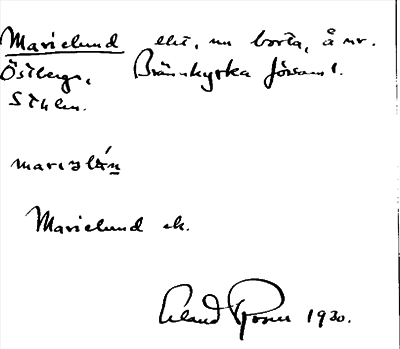 Marielund elit, nu borta, å nr.
Östberga, Brännkyrka församl.
Sthlm.
Marielund ek.
Erland Rosell 1930.